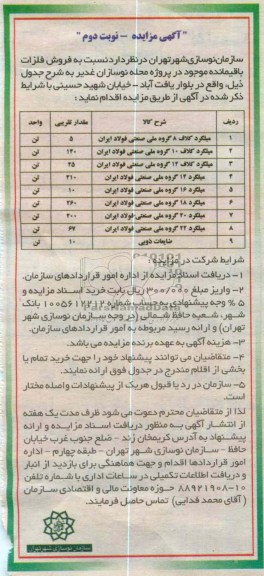 "آگهی مزایده - نوبت دوم"
سازمان نوسازی شهر تهران در نظر دارد نسبت به فروش فلزات
باقیمانده موجود در پروژه محله نوسازان غدیر به شرح جدول
ذیل، واقع در بلوار یافت آباد - خیابان شهید حسینی با شرایط
ذکر شده در آگهی از طریق مزایده اقدام نماید:
ردیف شرح کالا مقدار تقریبی واحد
۱ میلگرد کلاف ۸ گروه ملی صنعتی فولاد ایران ۵ تن
۲ میلگرد کلاف ۱۰ گروه ملی صنعتی فولاد ایران ۱۲۰ تن
۳ میلگرد کلاف ۱۲ گروه ملی صنعتی فولاد ایران ۲۵ تن
۴ میلگرد ۱۴ گروه ملی صنعتی فولاد ایران ۲۱۰ تن
۵ میلگرد ۱۶ گروه ملی صنعتی فولاد ایران ۱۰ تن
۶ میلگرد ۱۸ گروه ملی صنعتی فولاد ایران ۲۶۰ تن
۷ میلگرد ۲۰ گروه ملی صنعتی فولاد ایران ۲۰۰ تن
۸ میلگرد ۲۲ گروه ملی صنعتی فولاد ایران ۶۷ تن
۹ ضایعات ذوبی ۱۰ تن
شرایط شرکت در مزایده:
۱- دریافت اسناد مزایده از اداره امور قراردادهای سازمان.
۲- واریز مبلغ ۳۰۰/۰۰۰ ریال بابت خرید اسناد مزایده و
۵ % وجه پیشنهادی به حساب شماره ۱۰۰۵۶۱۲۲۱۲ بانک
شهر، شعبه حافظ شمالی (در وجه سازمان نوسازی شهر
تهران) و ارائه رسید مربوطه به امور قراردادهای سازمان.
۳- هزینه آگهی به عهده برنده مزایده می باشد.
۴- متقاضیان می توانند پیشنهاد خود را جهت خرید تمام یا
بخشی از اقلام مندرج در جدول فوق ارائه نمایند.
۵- سازمان در رد یا قبول هریک از پیشنهادات واصله مختار
است.
لذا از متقاضیان محترم دعوت می شود ظرف مدت یک هفته
از انتشار آگهی به منظور دریافت اسناد مزایده و ارائه
پیشنهاد به آدرس کریمخان زند - ضلع جنوب غرب خیابان
حافظ - سازمان نوسازی شهر تهران - طبقه چهارم - اداره
امور قراردادها اقدام و جهت هماهنگی برای بازدید از انبار
و دریافت اطلاعات تکمیلی در ساعات اداری با شماره تلفن
۸۸۹۲۱۹۰۸-۱۰ حوزه معاونت مالی و اقتصادی سازمان
(آقای محمد فدایی) تماس حاصل فرمایند.
سازمان نوسازی شهر تهران